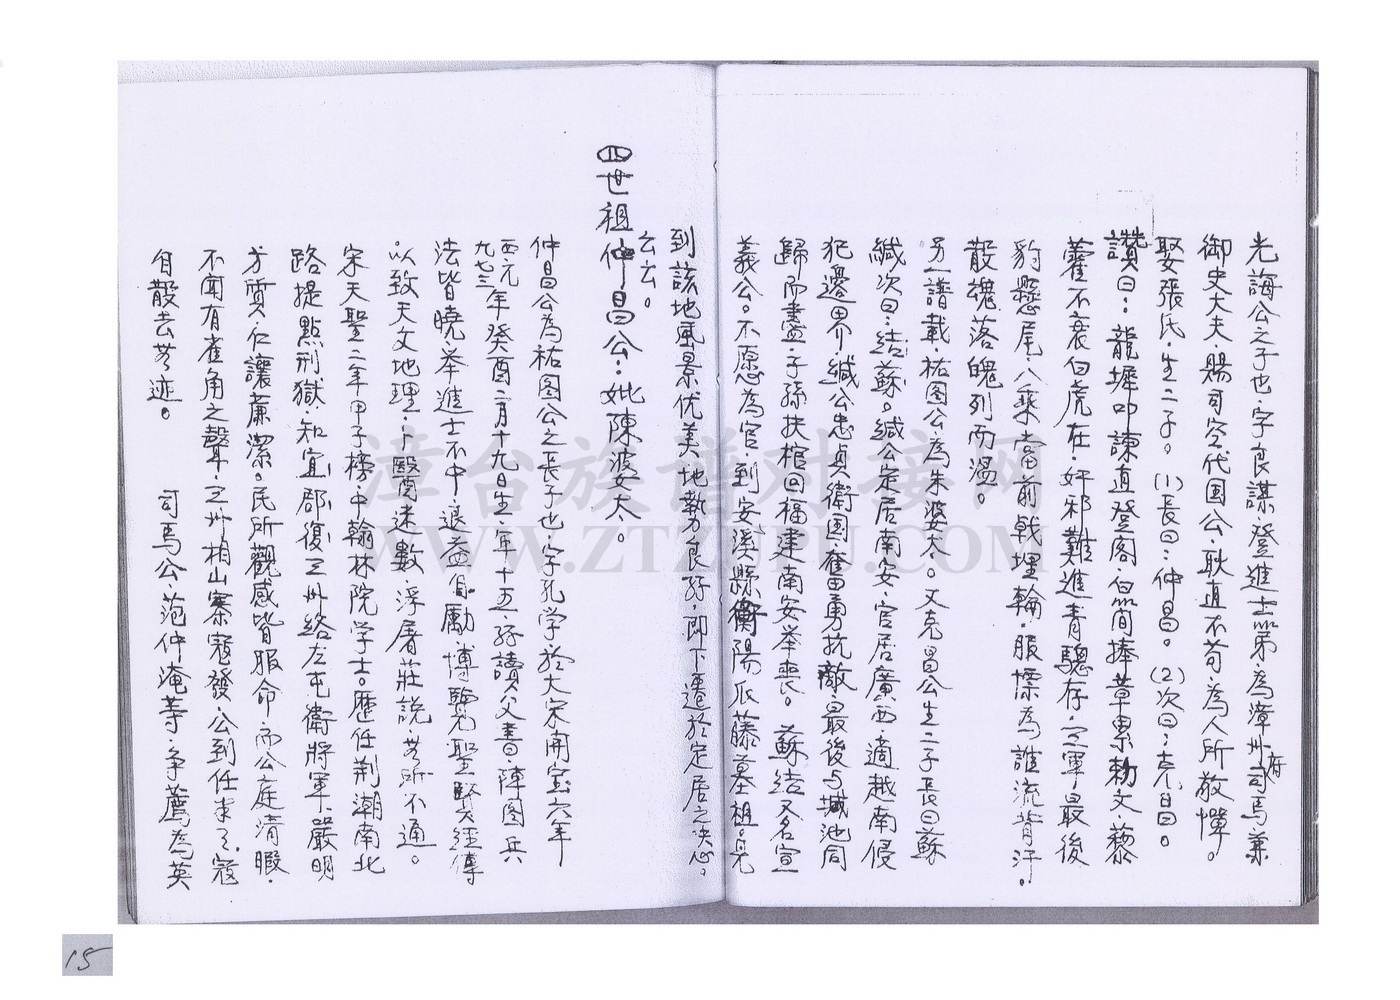 光誨公之子也．字良謀．登進士第．為漳州府司馬．兼
御史大夫．賜司空代国公．耿直不苟．為人所敬憚。
娶張氏．生二子。(1)長曰：仲昌。(2)次曰：克昌。
讚曰：龍墀叩諫直登閣．白簡捧章累勅文．藜
藿不衰白虎在．奸邪難進青驄存．定軍最後
豹懸尾．八乘當前戟埋輪．服慄為誰流背汗。
散魂落魄列而温。
另一譜載．祐图公為朱婆大。又克昌公生二子長曰蘇
緘次曰：結蘇。緘公定居南安．官居廣西．適越南侵
犯邊界．緘公忠貞衛国．奮勇抗敵．最後与城池同
歸而盡．子孫扶棺回福建南安举喪。蘇结又名宣
義公。不愿為官．到安溪縣衡陽瓜藤墓祖．見
到該地風景优美．地勢良好．即下遷於定居之决心。
云云。
四世祖仲昌公：妣陳婆大。
仲昌公為祐图公之長子也．字孔学．於大宋開宝六年
西元九七三年癸酉二月十九日生．年十五．孫讀父書．陣图兵
法皆曉．举進士不中．退益自勵．博覽聖賢經傳
．以致天文地理．卜醫速數．浮屠莊説．芳所不通。
宋天聖二年甲子榜．中翰林院学士。歷任荆湖南北
路提點刑獄．知宜郡復之州絡左屯衛將軍．嚴明
方質．仁讓蔗潔。民所觀感皆服命．而公庭清暇．
不聞有雀角之聲．之州相山寨寇發．公到任未了．寇
自散去芳迹。 司馬公．范仲淹等．争薦為英
15
漳台族譜对接网
WWW.ZTZUPU.COM